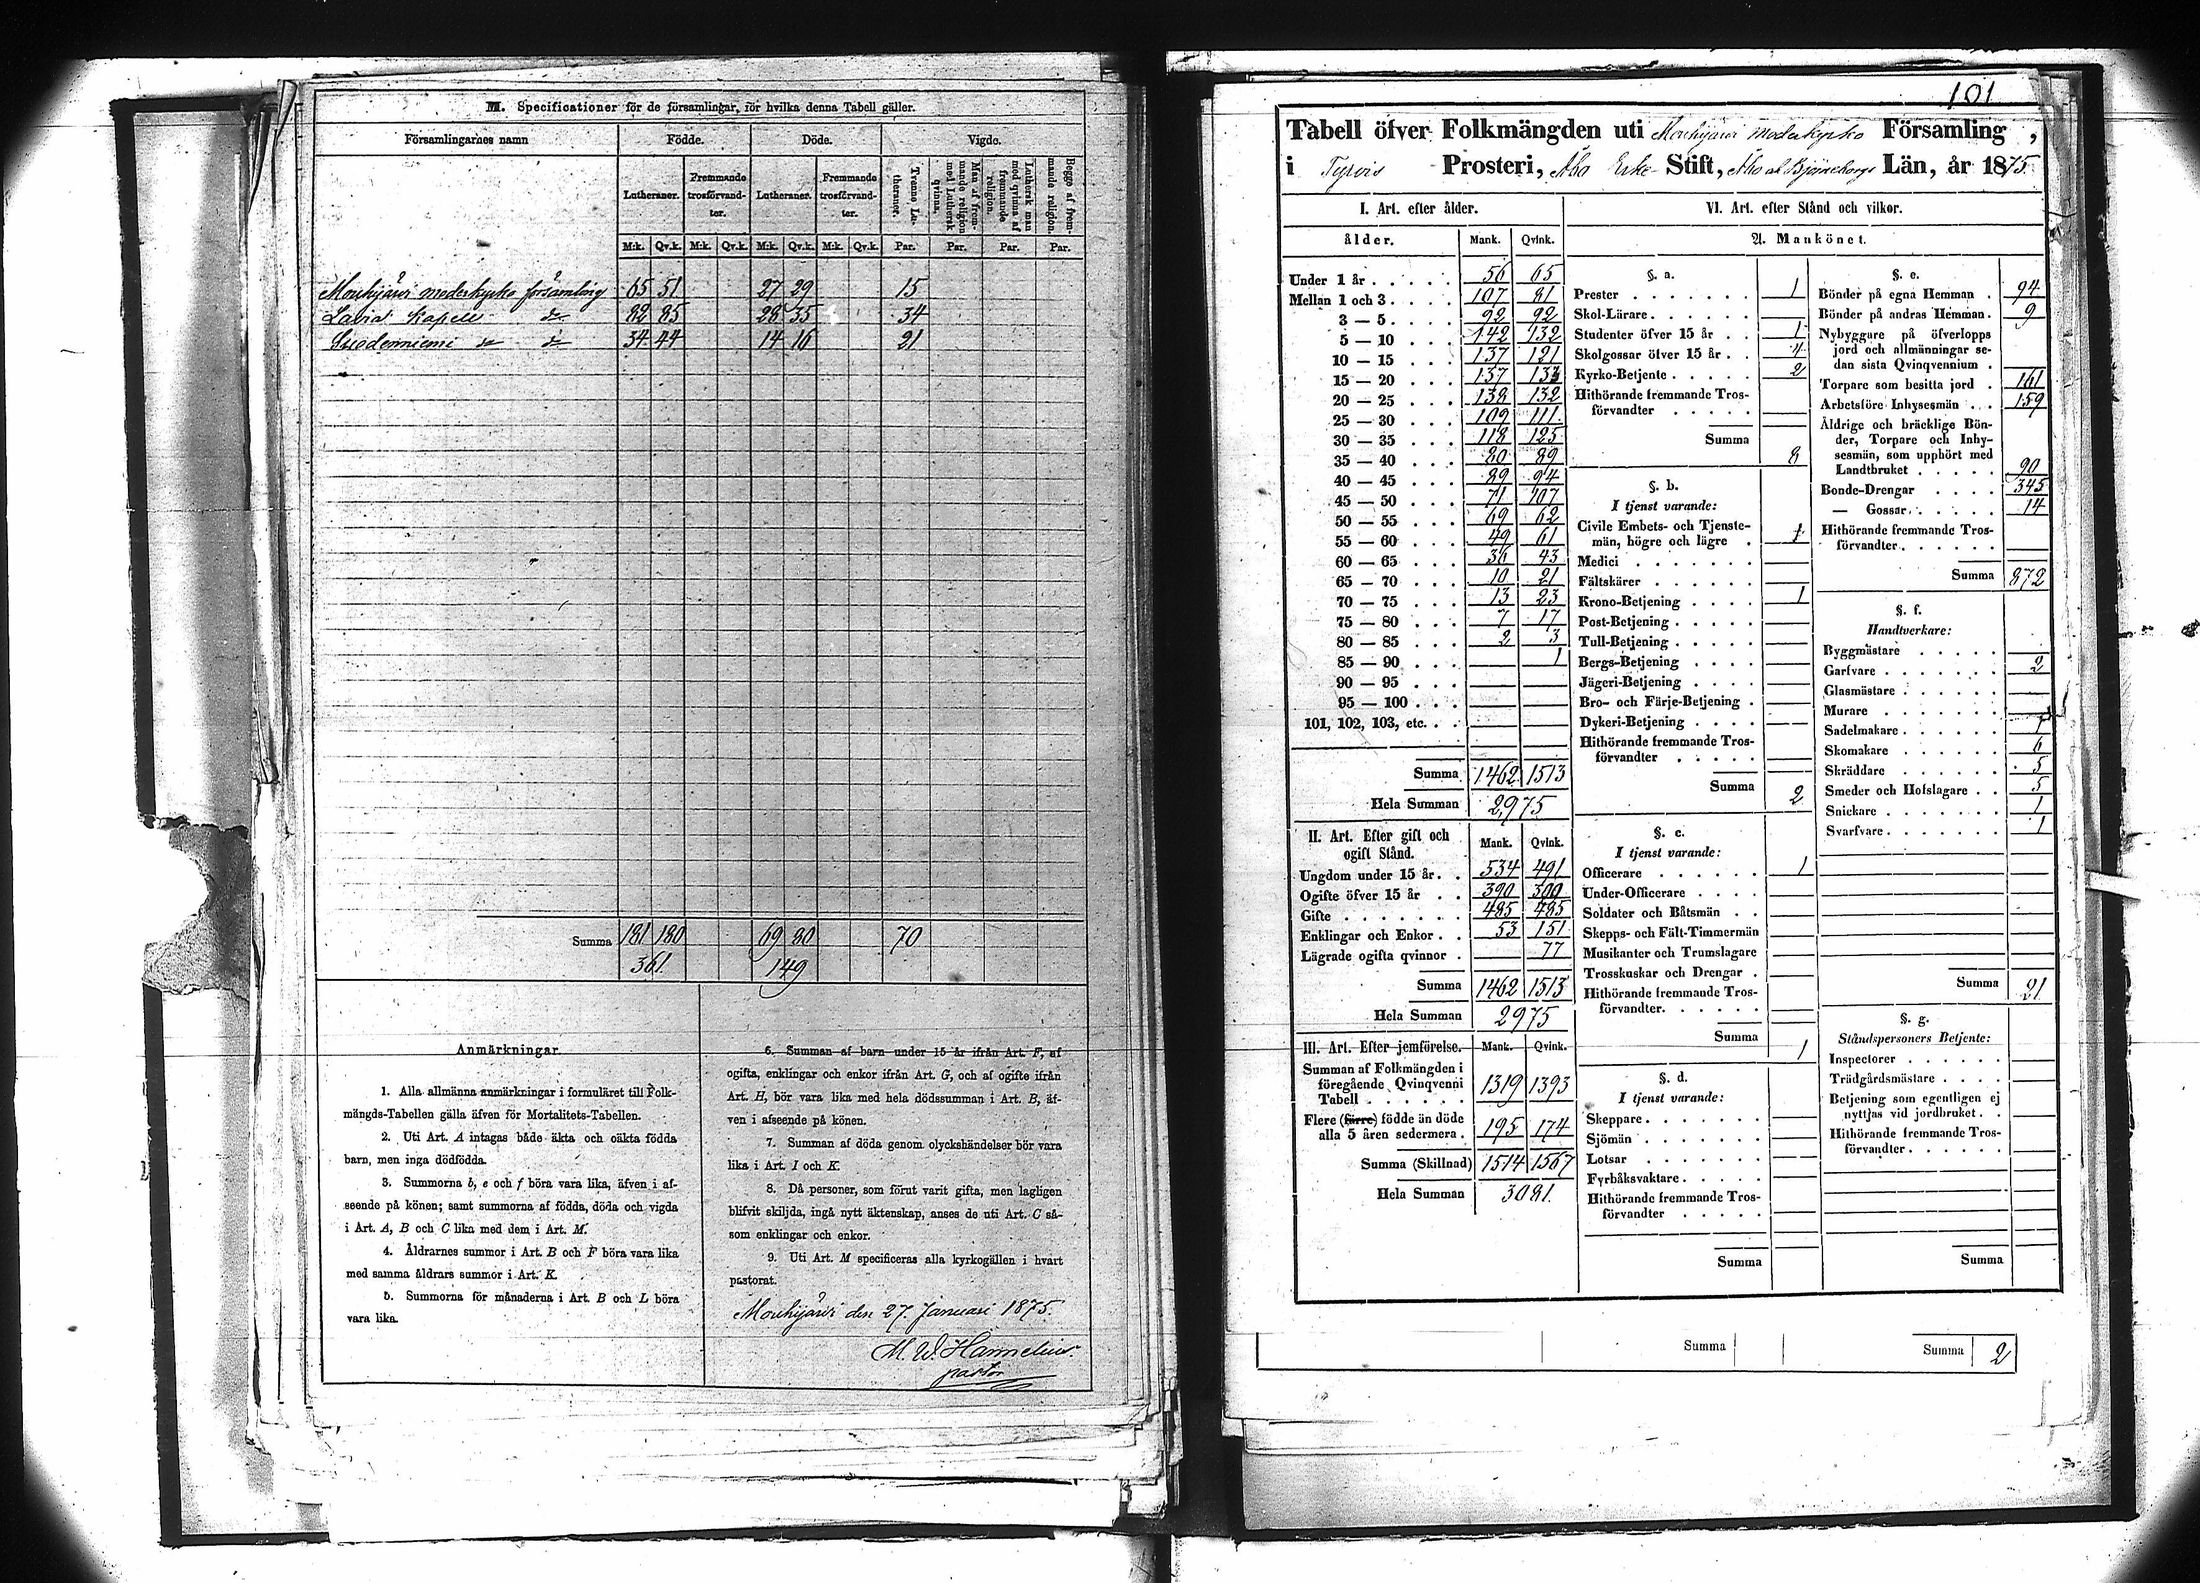 M. Specificationer för de församlingar, för hvilka denna Tabell gäller.
Församlingarnes namn
Födde. Döde. Vigde.
Lutheraner. Fremmande trosförvandter. Lutheraner. Fremmande trosförvandter. Tvenne Lutheraner. Man af fremmande religion med Luthersk qvinna. Luthersk man med qvinna af fremmande religion. Begge af fremmande religion.
M:k. Qv.k. M:k. Qv.k. M:k. Qv.k. M:k. Qv.k. Par. Par. Par. Par.
Mouhijärvi moderkyrko församling 65 51 27 29 15
Lavia Kapell do 82 85 28 35 34
Suodenniemi do do 34 44 14 16 21
Summa 181 180 69 80 70
361 149
Anmärkningar.
1. Alla allmänna anmärkningar i formuläret till Folk-
mängds-Tabellen gälla äfven för Mortalitets-Tabellen.
2. Uti Art. A intagas både äkta och oäkta födda
barn, men inga dödfödda.
3. Summorna b, e och f böra vara lika, äfven i af-
seende på könen; samt summorna af födda, döda och vigda
i Art. A, B och C lika med dem i Art. M.
4. Åldrarnes summor i Art. B och F böra vara lika
med samma åldrars summor i Art. K.
5. Summorna för månaderna i Art. B och L böra
vara lika.
6. Summan af barn under 15 år ifrån Art. F, af
ogifta, enklingar och enkor ifrån Art. G, och af ogifte ifrån
Art. H, bör vara lika med hela dödssumman i Art. B, äf-
ven i afseende på könen.
7. Summan af döda genom olyckshändelser bör vara
lika i Art. I och K.
8. Då personer, som förut varit gifta, men lagligen
blifvit skiljda, ingå nytt äktenskap, anses de uti Art. C så-
som enklingar och enkor.
9. Uti Art. M specificeras alla kyrkogällen i hvart
pastorat.
Mouhijärvi den 27. Januari 1875.
M. W. Hannelius.
pastor
101
Tabell öfver Folkmängden uti Mouhijärvi moderkyrko Församling,
i Tyrvis Prosteri, Åbo Erke- Stift, Åbo och Björneborgs Län, år 1875.
I. Art. efter ålder.
ålder. Mank. Qvink.
Under 1 år 56 65
Mellan 1 och 3 107 81
3 — 5 92 92
5 — 10 142 132
10 — 15 137 121
15 — 20 137 133
20 — 25 138 132
25 — 30 109 111
30 — 35 118 125
35 — 40 80 89
40 — 45 89 94
45 — 50 71 107
50 — 55 69 62
55 — 60 49 61
60 — 65 36 43
65 — 70 10 21
70 — 75 13 23
75 — 80 7 17
80 — 85 2 3
85 — 90 1
90 — 95
95 — 100
101, 102, 103, etc.
Summa 1462 1513
Hela Summan 2975
II. Art. Efter gift och ogift Stånd. Mank. Qvink.
Ungdom under 15 år 534 491
Ogifte öfver 15 år 390 309
Gifte 485 485
Enklingar och Enkor 53 151
Lägrade ogifta qvinnor 77
Summa 1462 1513
Hela Summan 2975
III. Art. Efter jemförelse. Mank. Qvink.
Summan af Folkmängden i
föregående Qvinqvenni
Tabell 1319 1393
Flere (färre) födde än döde
alla 5 åren sedermera 195 174
Summa (Skillnad) 1514 1567
Hela Summan 3081.
VI. Art. efter Stånd och vilkor.
A. Mankönet.
§. a.
Prester 1
Skol-Lärare
Studenter öfver 15 år 1
Skolgossar öfver 15 år 4
Kyrko-Betjente 2
Hithörande fremmande Tros-
förvandter
Summa 8
§. b.
I tjenst varande:
Civile Embets- och Tjenste-
män, högre och lägre 1
Medici
Fältskärer
Krono-Betjening 1
Post-Betjening
Tull-Betjening
Bergs-Betjening
Jägeri-Betjening
Bro- och Färje-Betjening
Dykeri-Betjening
Hithörande fremmande Tros-
förvandter
Summa 2
§. c.
I tjenst varande:
Officerare 1
Under-Officerare
Soldater och Båtsmän
Skepps- och Fält-Timmermän
Musikanter och Trumslagare
Trosskuskar och Drengar
Hithörande fremmande Tros-
förvandter.
Summa 1
§. d.
I tjenst varande:
Skeppare
Sjömän
Lotsar
Fyrbåksvaktare
Hithörande fremmande Tros-
förvandter
Summa
§. e.
Bönder på egna Hemman 94
Bönder på andras Hemman 9
Nybyggare på öfverlopps
jord och allmänningar se-
dan sista Qvinqvennium
Torpare som besitta jord 161
Arbetsföre Inhysesmän 159
Åldrige och bräcklige Bön-
der, Torpare och Inhy-
sesmän, som upphört med
Landtbruket 90
Bonde-Drengar 345
— Gossar 14
Hithörande fremmande Tros-
förvandter
Summa 872
§. f.
Handtverkare:
Byggmästare
Garfvare 2
Glasmästare
Murare
Sadelmakare 1
Skomakare 6
Skräddare 5
Smeder och Hofslagare 5
Snickare 1
Svarfvare 1
Summa 21
§. g.
Ståndspersoners Betjente:
Inspectorer
Trädgårdsmästare
Betjening som egentligen ej
nyttjas vid jordbruket
Hithörande fremmande Tros-
förvandter
Summa
Summa Summa 2